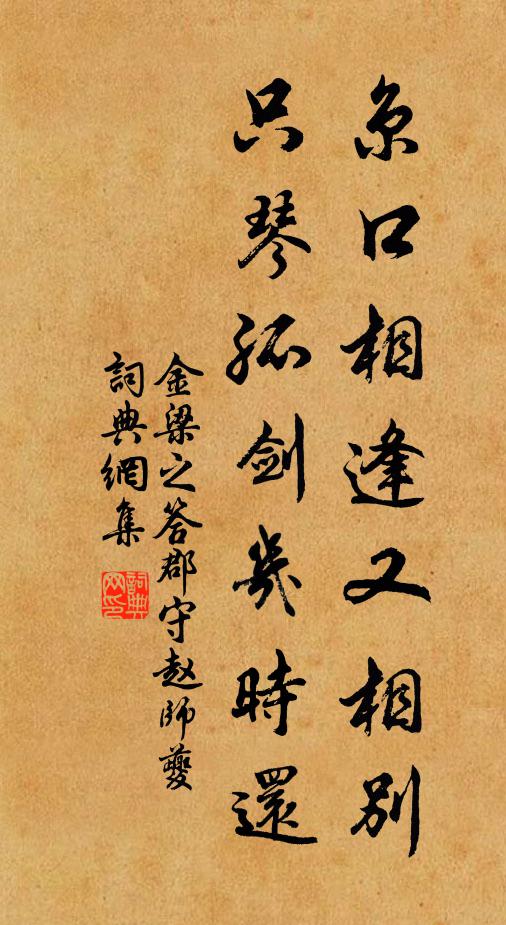 京口相逢又相别
只琴孤剑幾時還
金梁之答郡守赵師夔
詞典網集
詞典网印